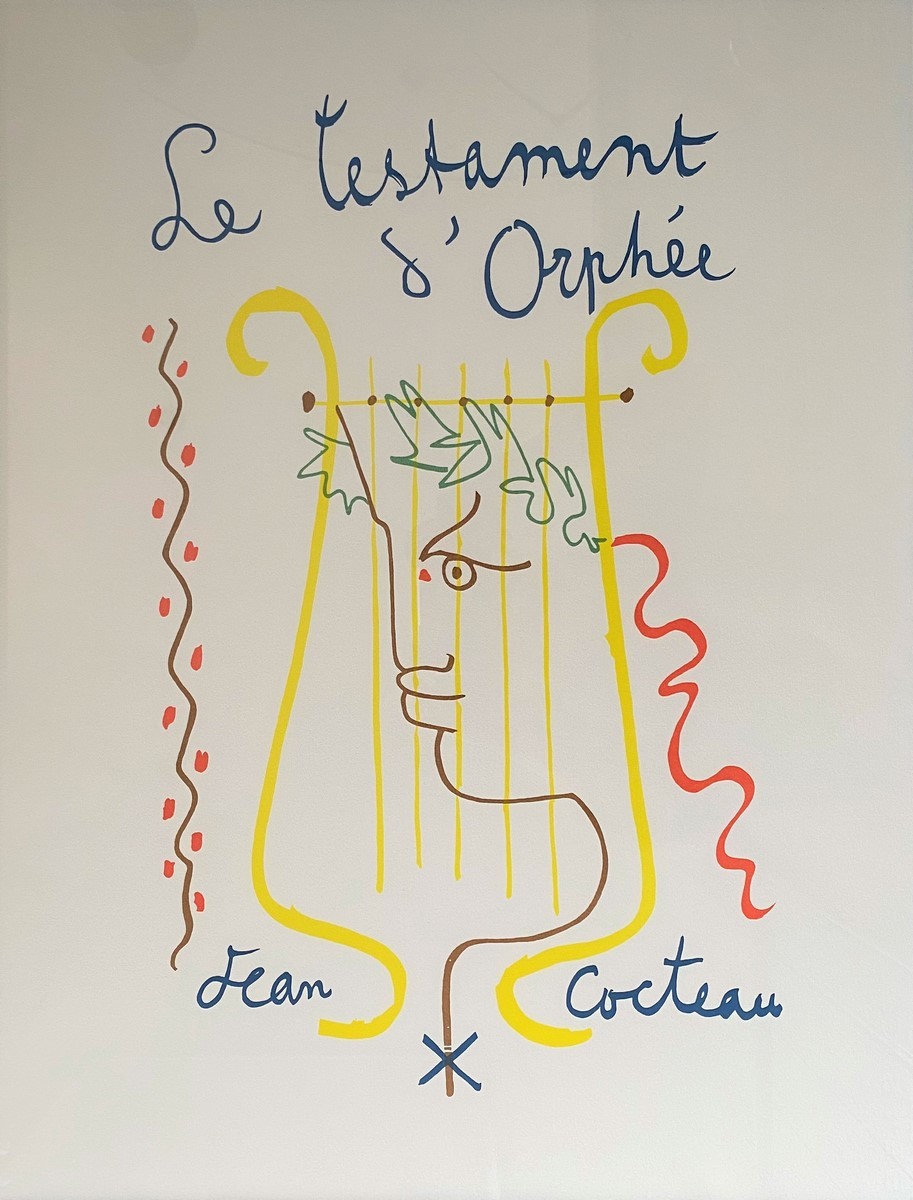 Le Testament
d'Orphée
Jean Cocteau